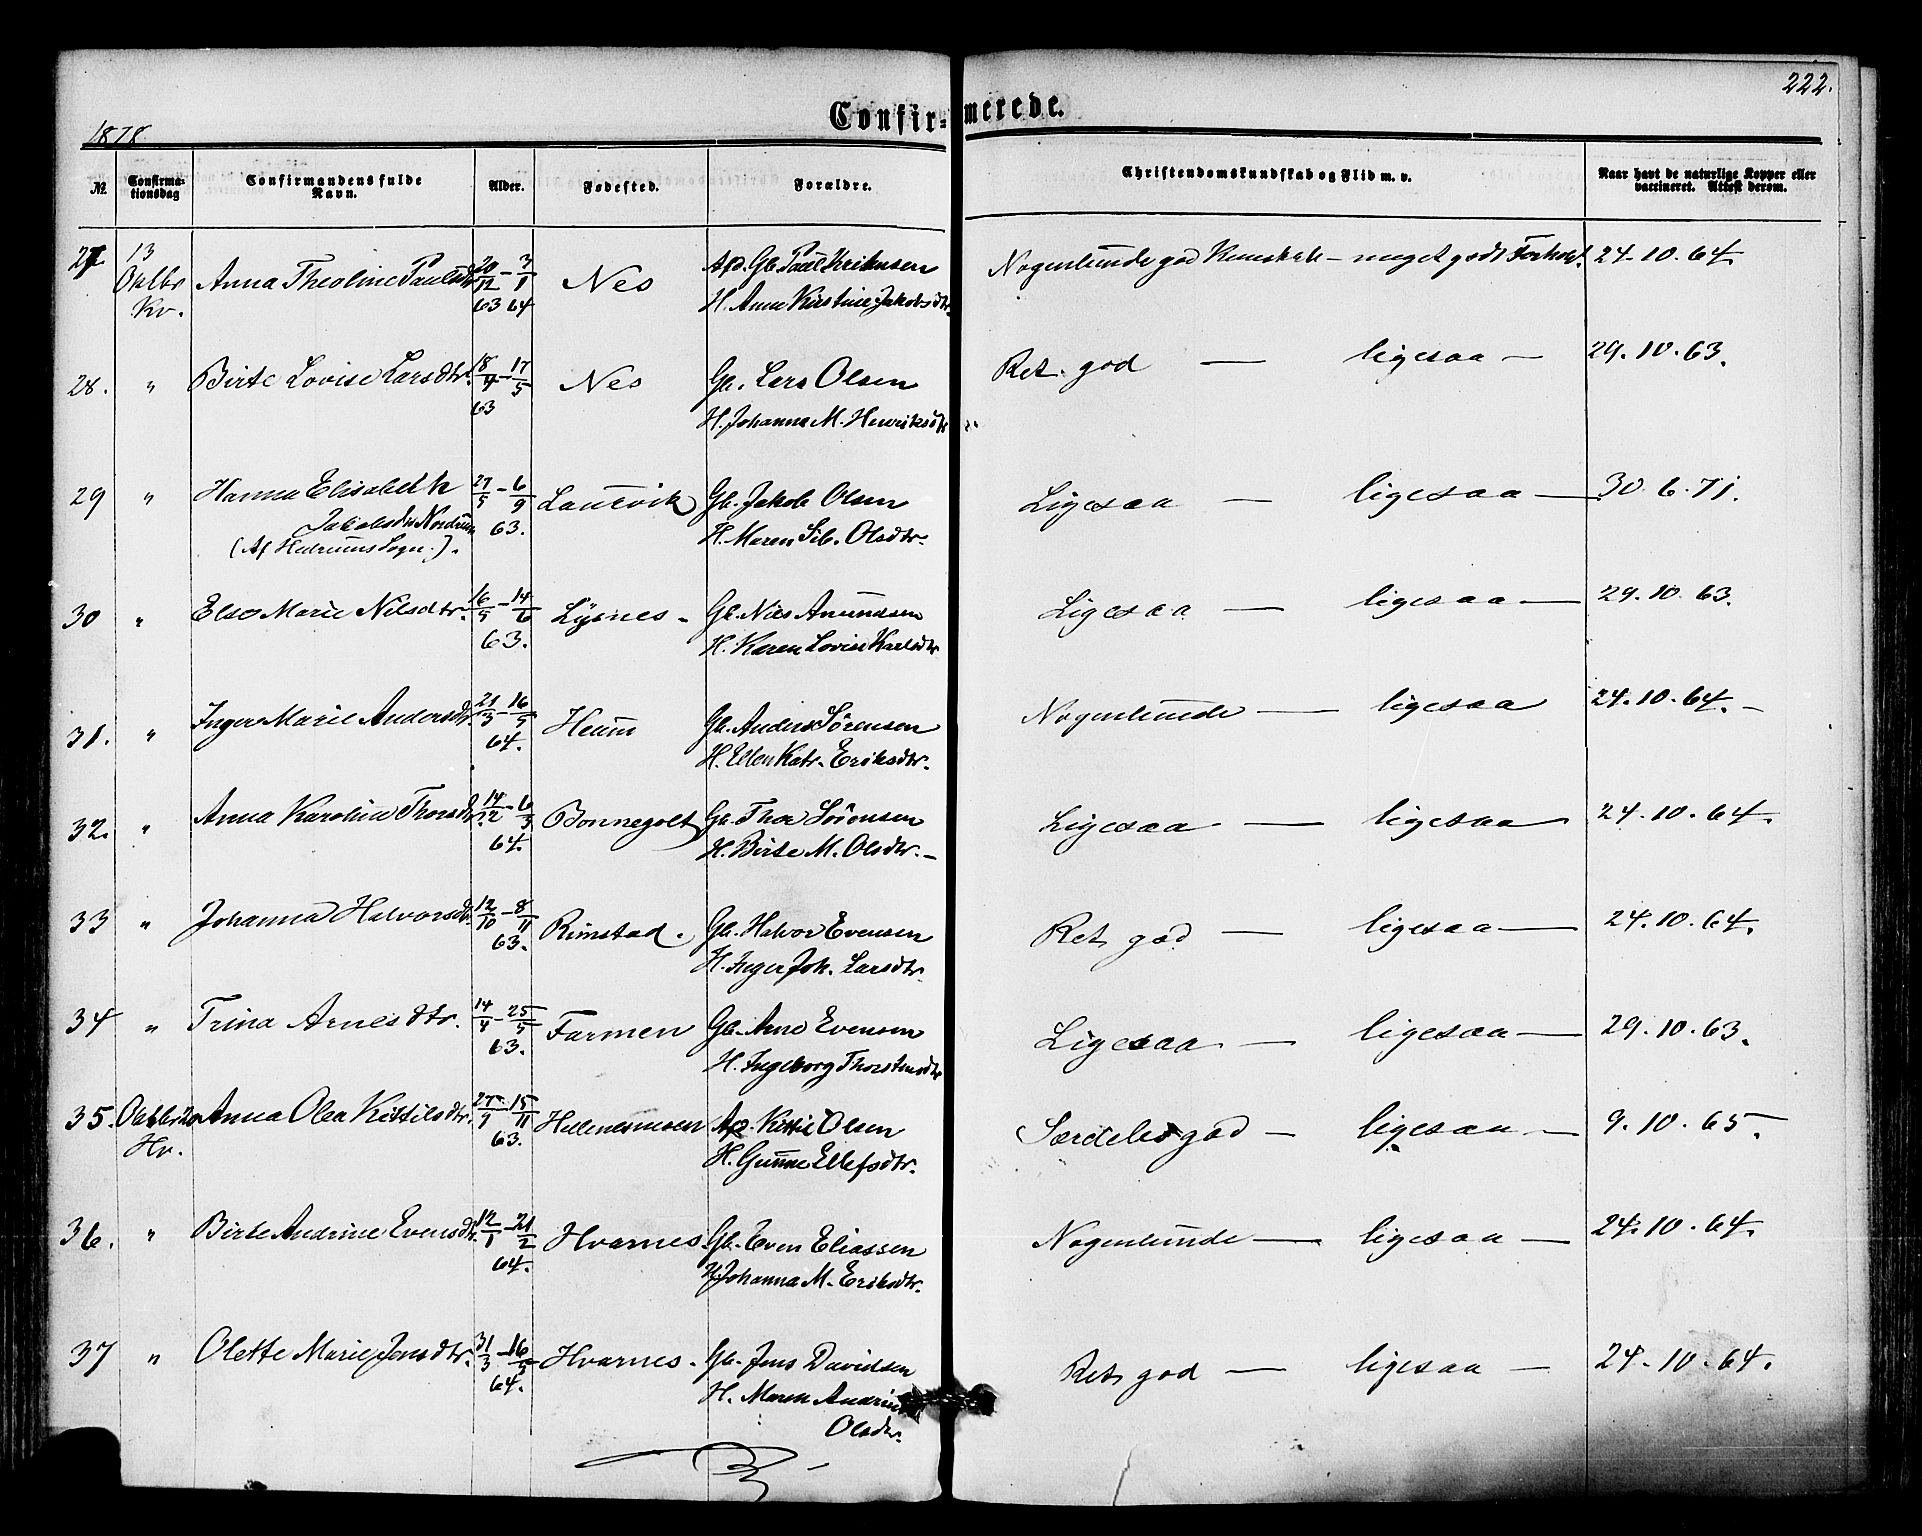 222.
Confir-merede.
1878
№ Confirmationsdag Confirmandens fulde Navn. Alder. Fødested. Forældre. Christendomskundskab og Flid m. v. Naar havt de naturlige Kopper eller vaccineret. Attest derom.
27 13 Oktbr Kv. Anna Theoline Paulsdtr 20/12 63 - 3/1 64 Nes Afd. Gb. Paul Kristensen Nogenlunde god Kundskab - meget godt Forhold. 24.10.64.
H. Anne Kirstine Jakobsdtr.
28. " Birte Lovise Larsdtr. 18/4 - 17/5 63 Nes Gb. Lars Olsen Ret god — ligesaa — 29.10.63.
H. Johanna M. Henriksdtr
29 " Hanna Elisabeth 27/5 - 6/9 63. Laurvik Gb. Jakob Olsen Ligesaa — ligesaa — 30.6.71.
Jakobsdtr Nordrum H. Maren Sib. Olsdtr.
(Af Hedrums Sogn.).
30 " Else Marie Nilsdtr. 16/5 - 14/6 63. Lysnes - Gb. Nils Amundsen Ligesaa — ligesaa — 29.10.63.
H. Karen Lovise Karlsdtr
31. " Inger Marie Andersdtr. 21/3 - 16/5 64. Heum Gb. Anders Sørensen Nogenlunde — ligesaa 24.10.64. -
H. Ellen Katr. Eriksdtr.
32. " Anna Karolina Thorsdtr. 14/12 - 6/3 64. Bonnegolt Gb. Thor Sørensen Ligesaa — ligesaa — 24.10.64.
H. Birte M. Olsdtr. -
33 " Johanna Halvorsdtr. 12/10 - 8/11 63. Rimstad. Gb. Halvor Evensen Ret god — ligesaa — 24.10.64.
H. Inger Joh. Larsdtr.
34 " Trina Arnesdtr. 14/4 - 25/5 63. Farmen Gb. Arne Evensen Ligesaa — ligesaa — 29.10.63.
H. Ingeborg Thorstensdtr
35. Oktbr 20 Hv. Anna Olea Kittilsdtr. 27/9 - 15/11 63. Gb. Kittil Olsen Særdeles god — ligesaa — 9.10.65.
H. Gunne Ellefsdtr.
36. " Birte Andrine Evensdtr. 12/1 - 21/2 64. Hvarnes. Gb. Even Eliassen Nogenlunde — ligesaa — 24.10.64.
H. Johanna M. Eriksdtr.
37 " Olette Marie Jensdtr. 31/3 - 16/5 64. Hvarnes. Gb. Jens Davidsen Ret god — ligesaa — 24.10.64.
H. Maren Andrine
Olsdtr.